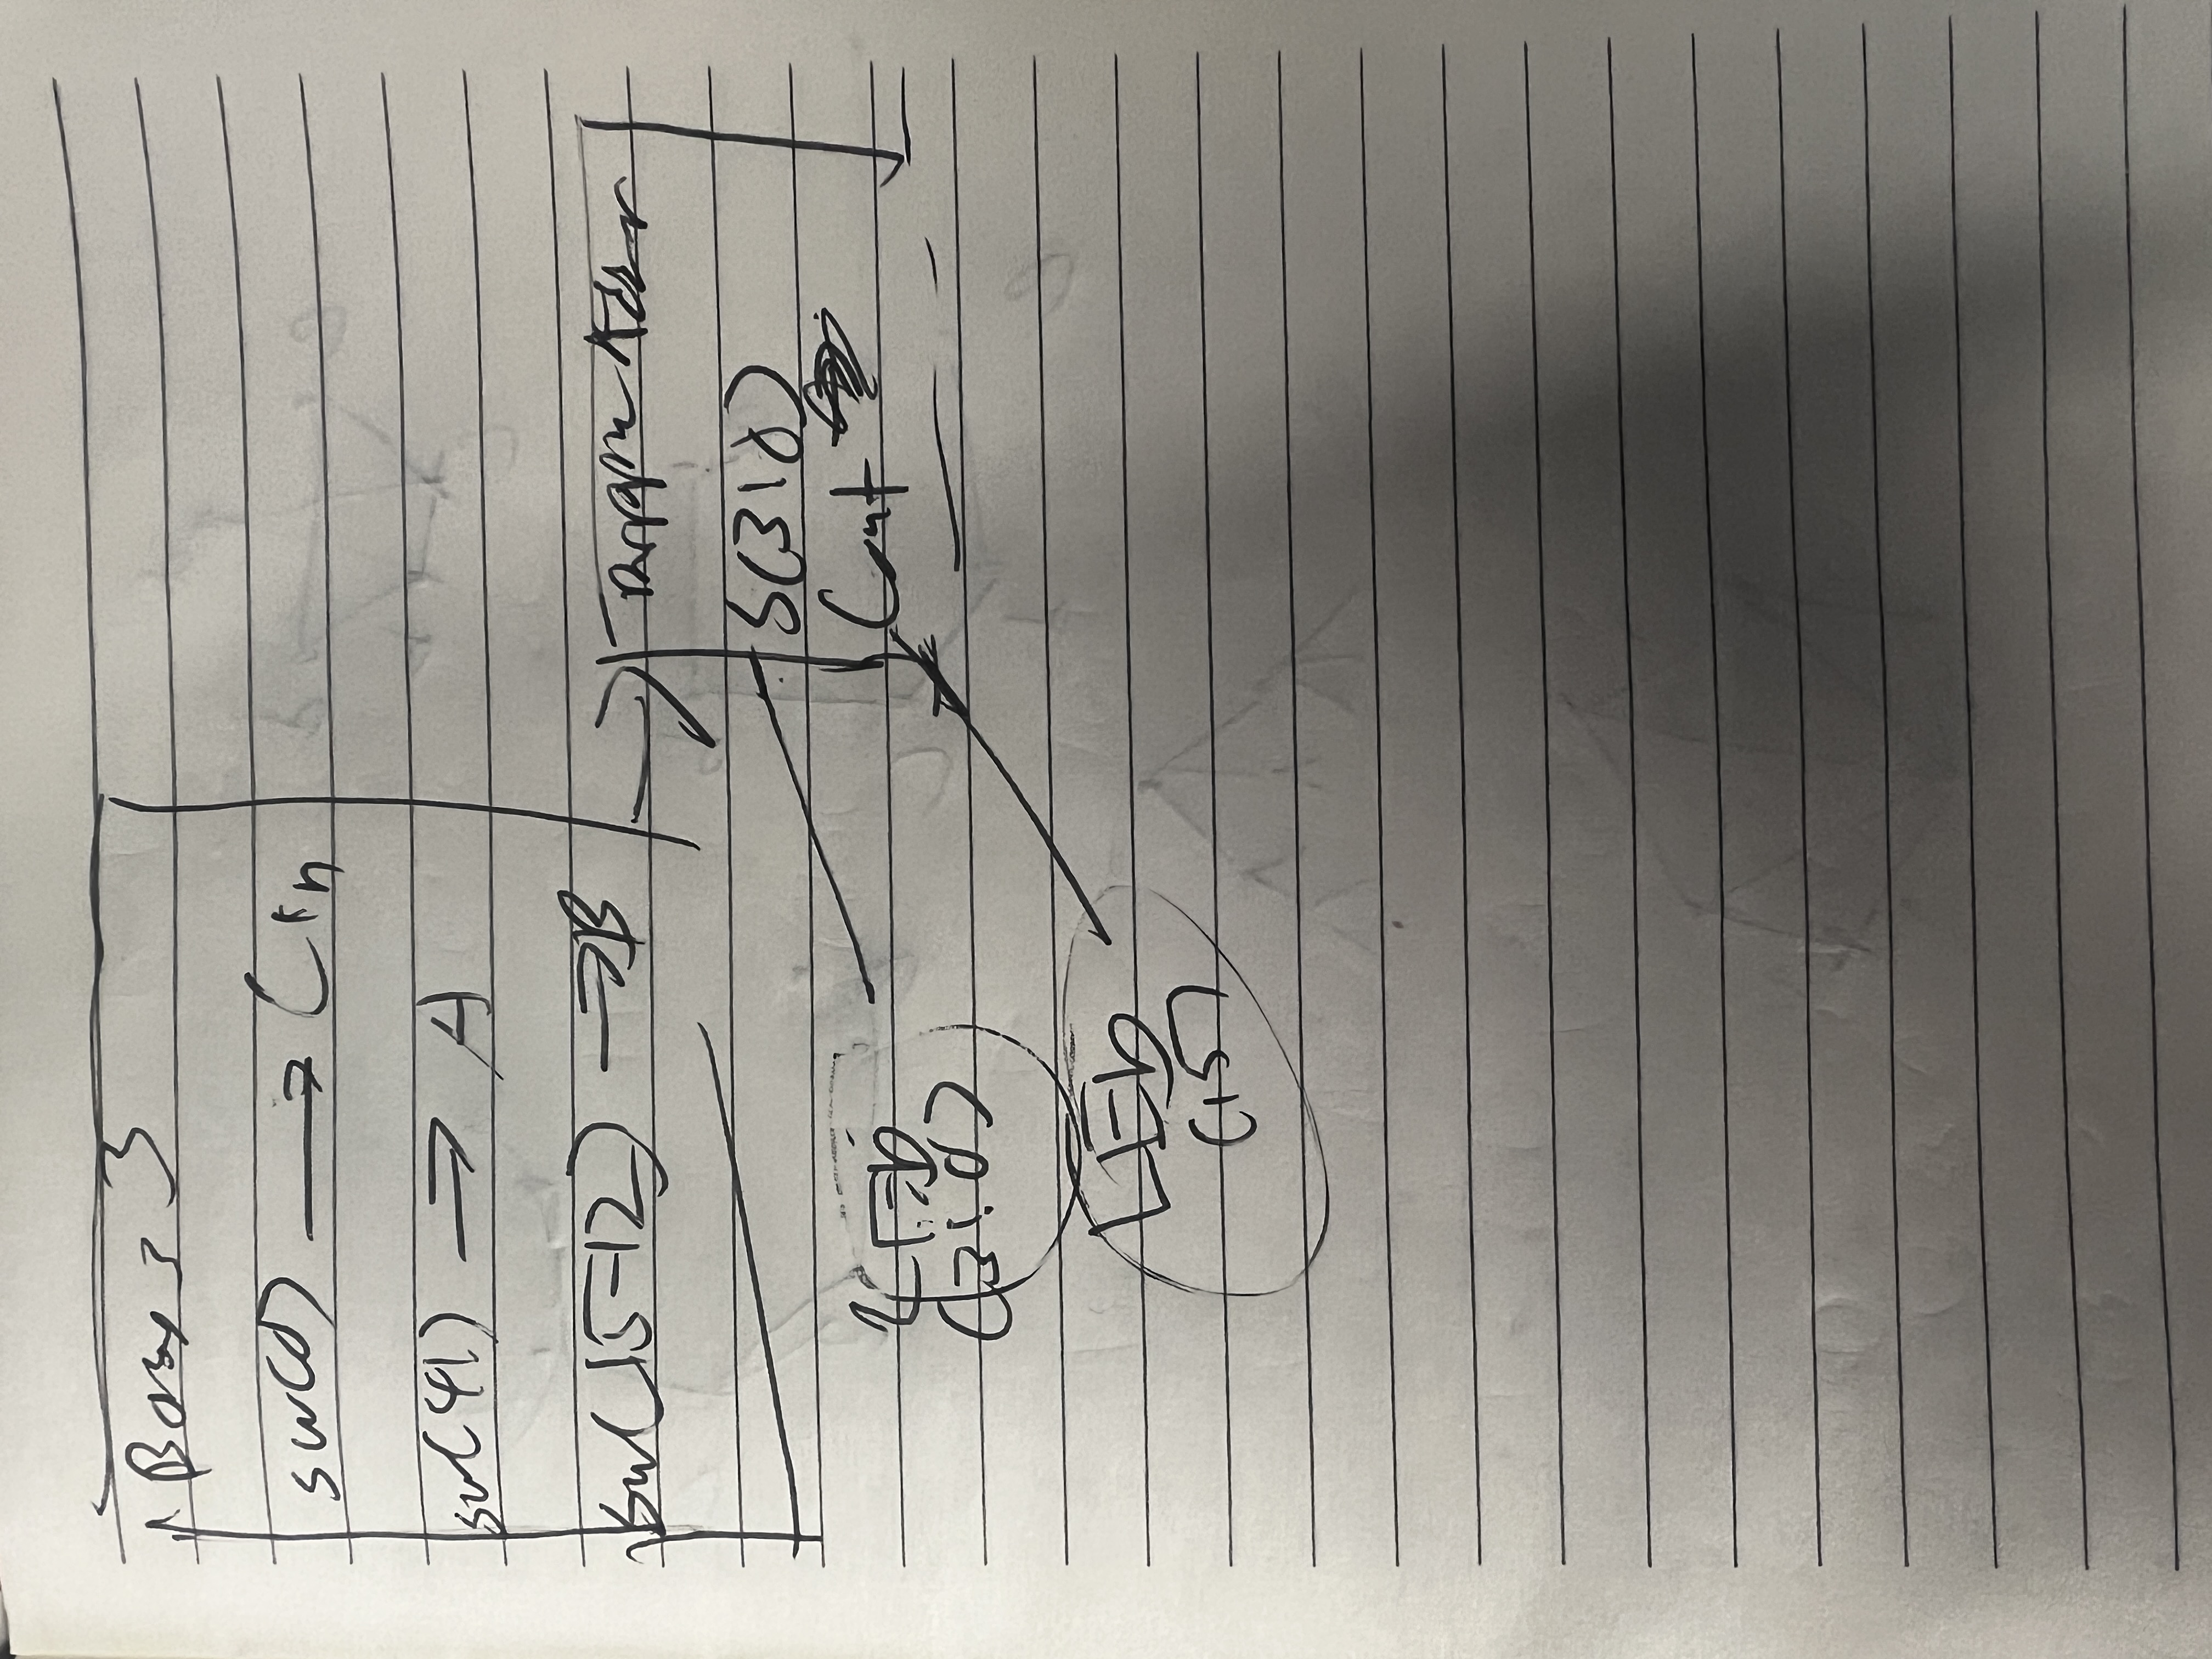 Basys 3
sw(0) → Cin
sw(41) → A
sw(15-12) → B
Ripple Adder
S(3:0)
Cout
LED
(3:0)
LED
(15)